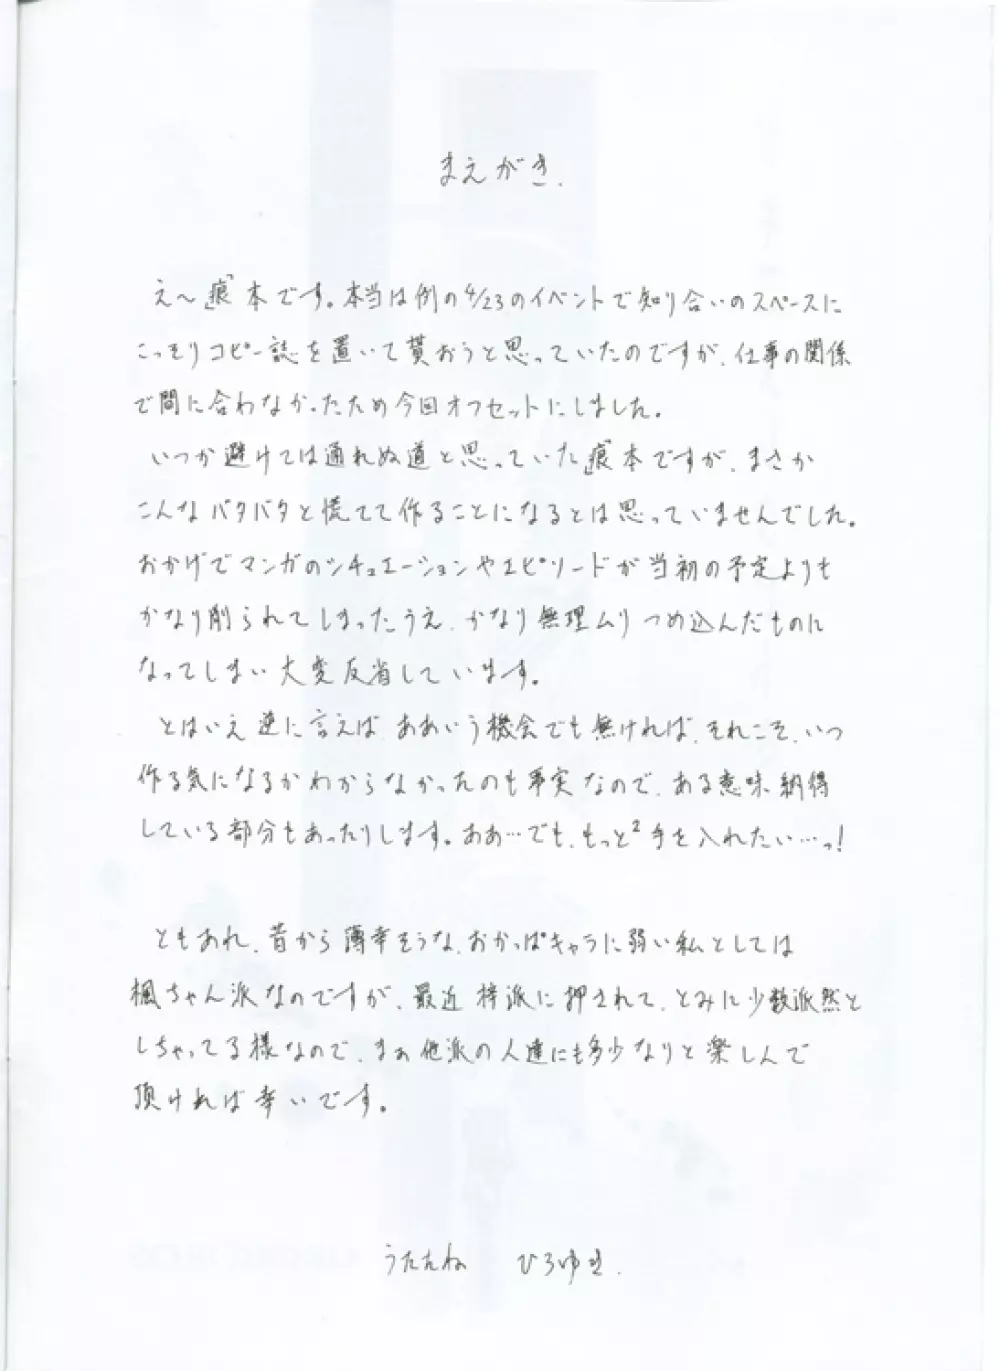 まえがき.
え〜「痕」本です。本当は例の4/23のイベントで知り合いのスペースに
こっそりコピー誌を置いて貰おうと思っていたのですが、仕事の関係
で間に合わなかったため今回オフセットにしました。
いつか避けては通れぬ道と思っていた「痕」本ですが、まさか
こんなバタバタと慌てて作ることになるとは思っていませんでした。
おかげでマンガのシチュエーションやエピソードが当初の予定よりも
かなり削られてしまったうえ、かなり無理ムリつめ込んだものに
なってしまい大変反省しています。
とはいえ逆に言えば、ああいう機会でも無ければ、それこそ、いつ
作る気になるかわからなかったのも事実なので、ある意味納得
している部分もあったりします。ああ…でも、もっと²手を入れたい…っ!
ともあれ、昔から薄幸そうな、おかっぱキャラに弱い私としては
楓ちゃん派なのですが、最近梓派に押されて、とみに少数派然と
しちゃってる様なので、まぁ他派の人達にも多少なりと楽しんで
頂ければ幸いです。
うたたね ひろゆき.